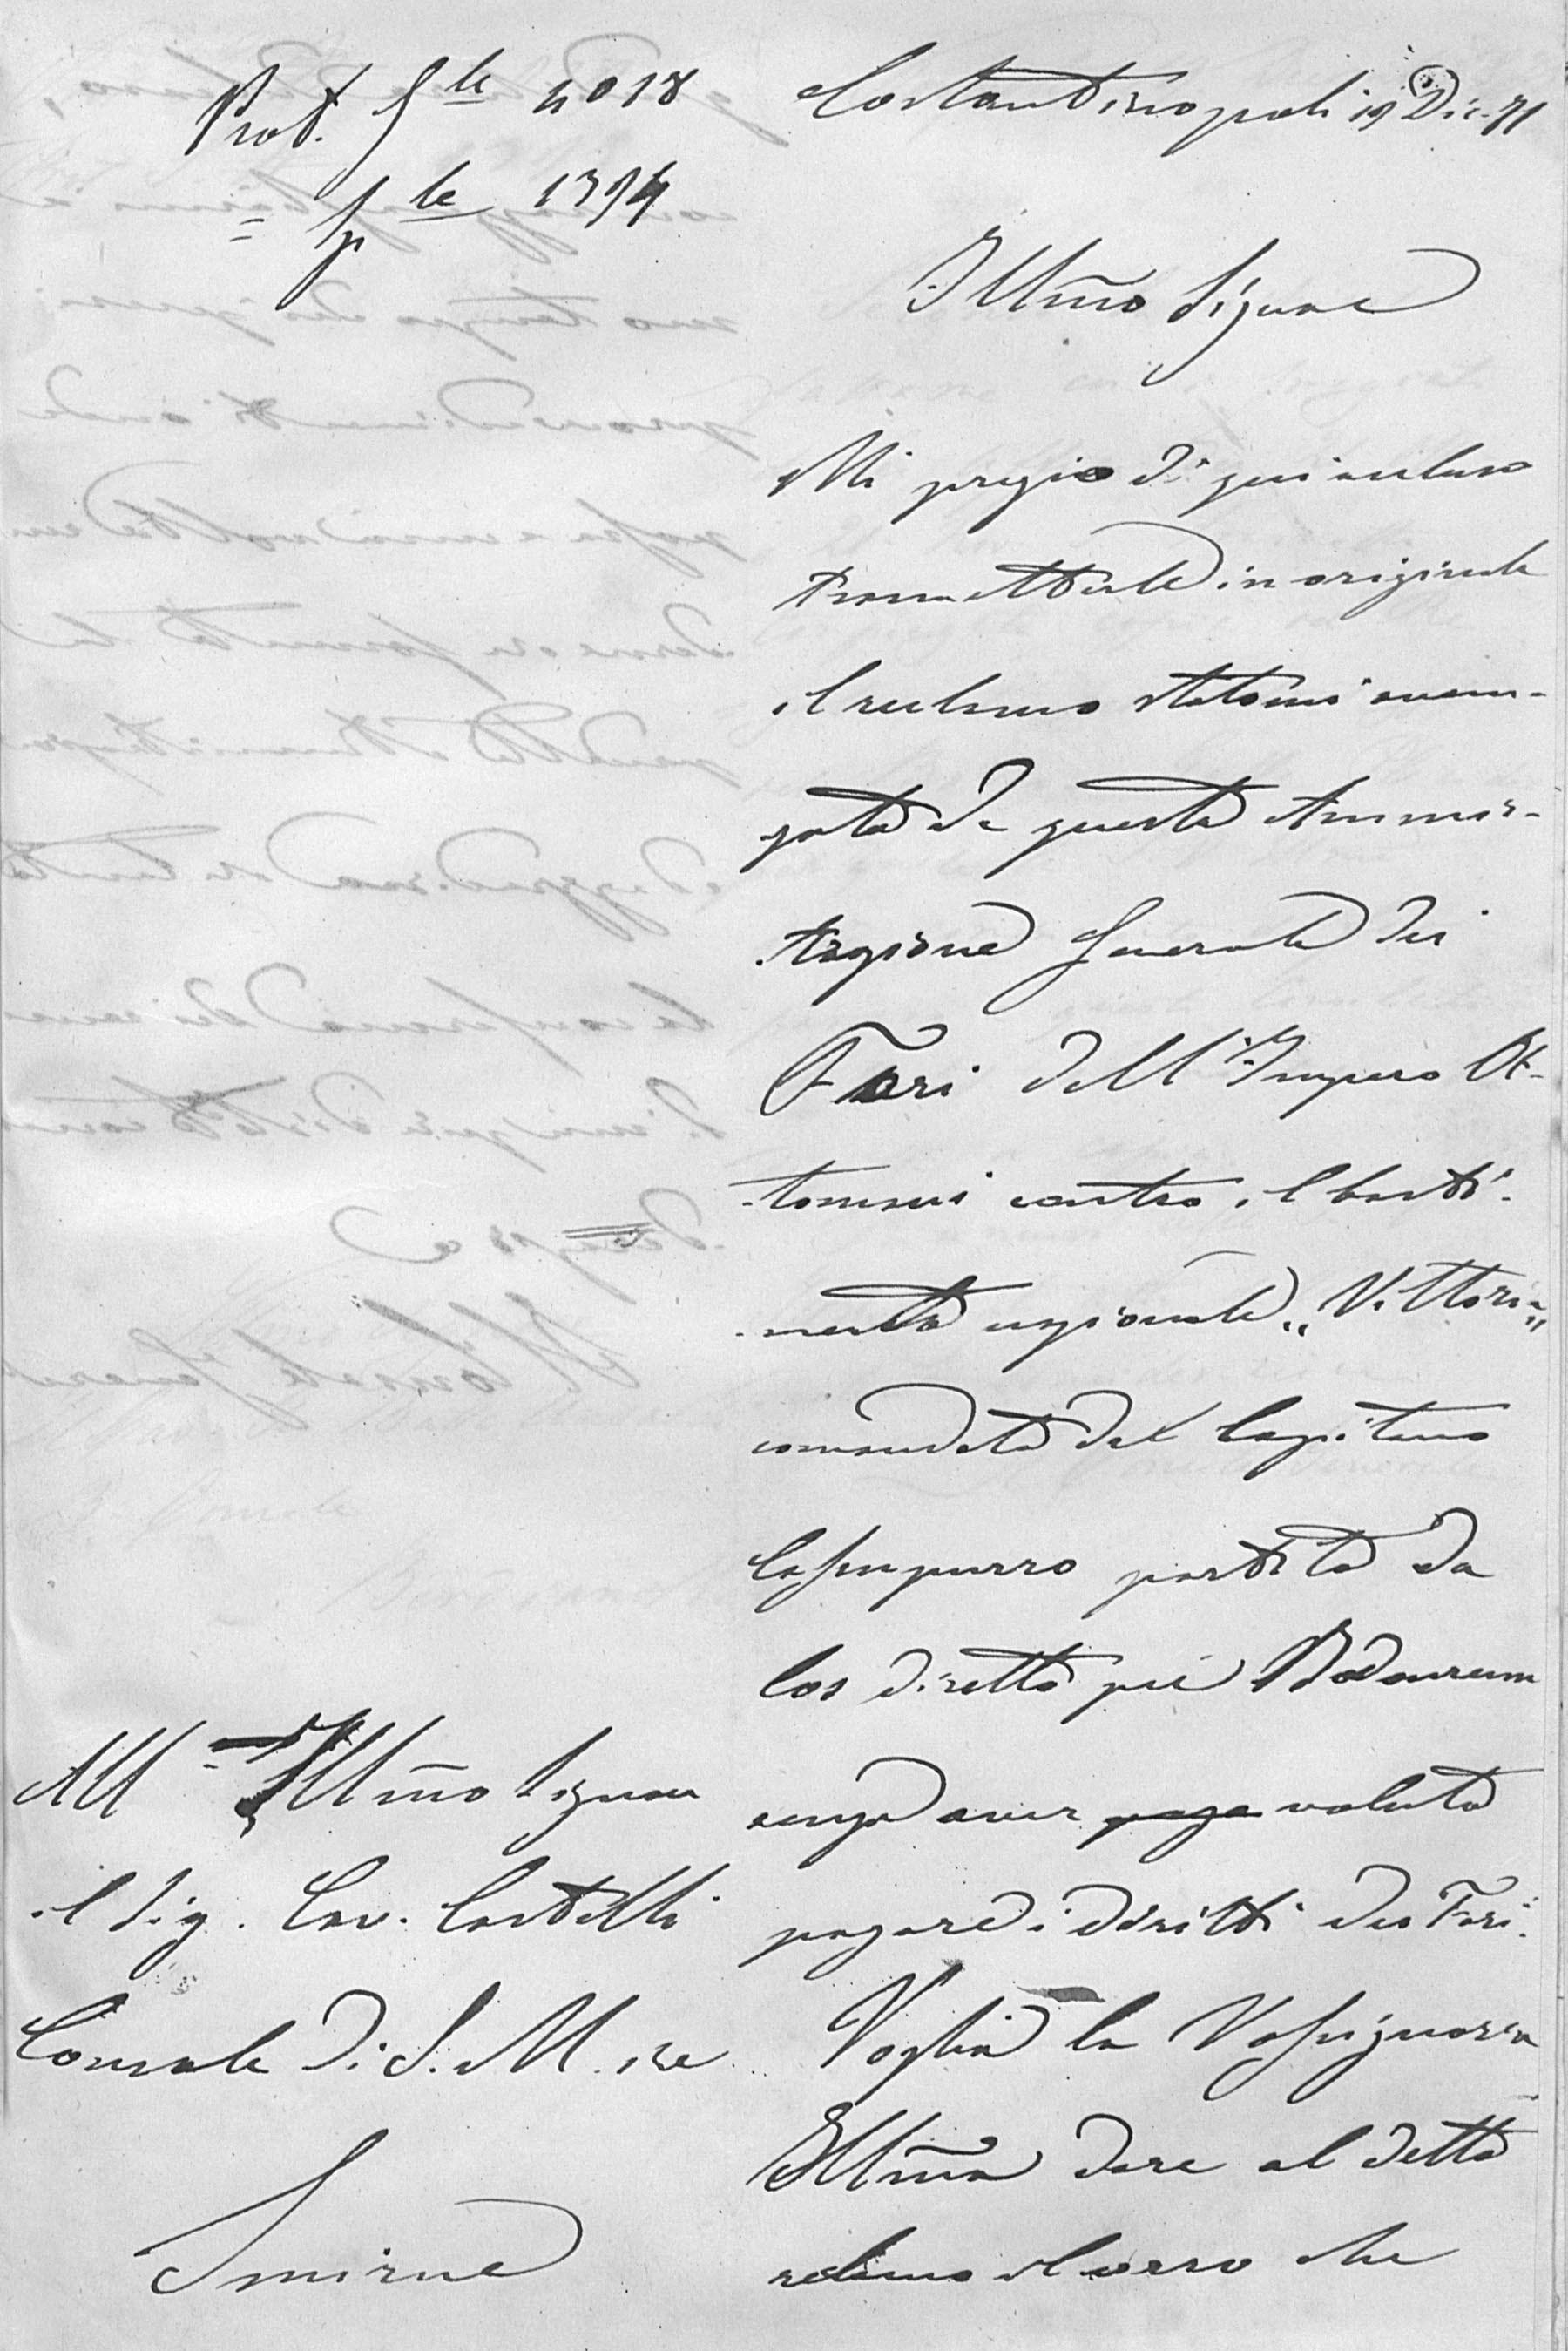 Prot. Gle 4018
= ple 1394
Costantinopoli 19 Dic. 71
Illmo Signore
Mi pregio di qui incluso
trasmetterle in originale
il reclamo statomi avan-
zato da questa Ammini-
strazione Generale dei
Fari dell'Impero Ot-
tomano contro il basti-
mento nazionale "Vittoria"
comandato dal Capitano
partito da
Cos diretto per Bodouroum
senza aver paga voluto
pagare i diritti dei Fari.
Voglia la Vossignoria
Illma dare al detto
reclamo il corso che
All' Illmo Signore
il Sig. Cav. Castelli
Console di S. M. il Re
Smirne